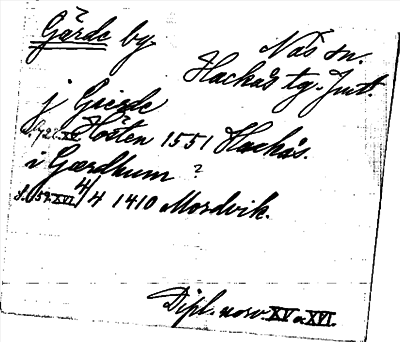 Gärde by
Näs sn.
Hackås tg. Jmt.
j Gierde
s. 721. XV. Hösten 1551 Hackås.
i Gærdhum ?
s. 59. XVI. 4/4 1410 Mordvik.
Dipl. norv. XV o. XVI.